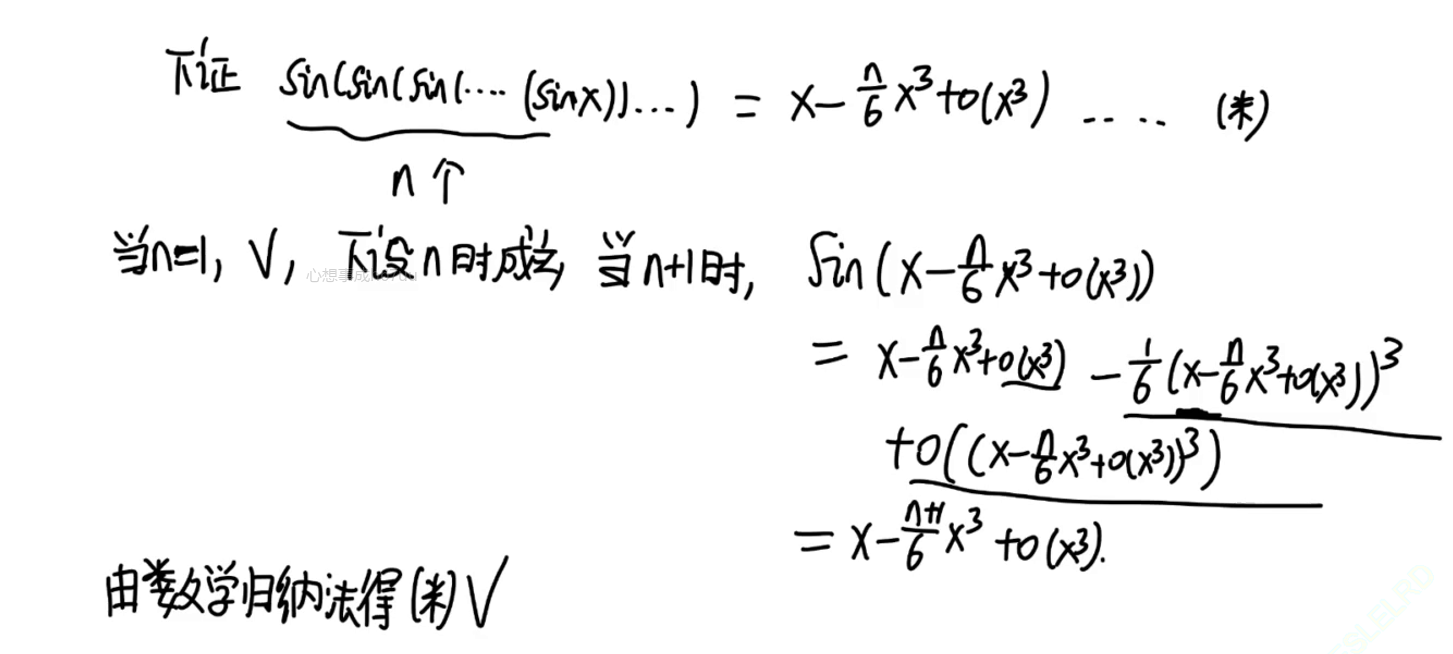 下证 sin(sin(sin(···· (sinx))...) = x-n/6 x³+o(x³) ····· (*)
n个
当n=1, √, 下设n时成立, 当n+1时, sin(x-n/6 x³+o(x³))
= x-n/6 x³+o(x³) -1/6(x-n/6 x³+o(x³))³
+o((x-n/6 x³+o(x³))³)
= x-n+1/6 x³+o(x³).
由数学归纳法得(*)√